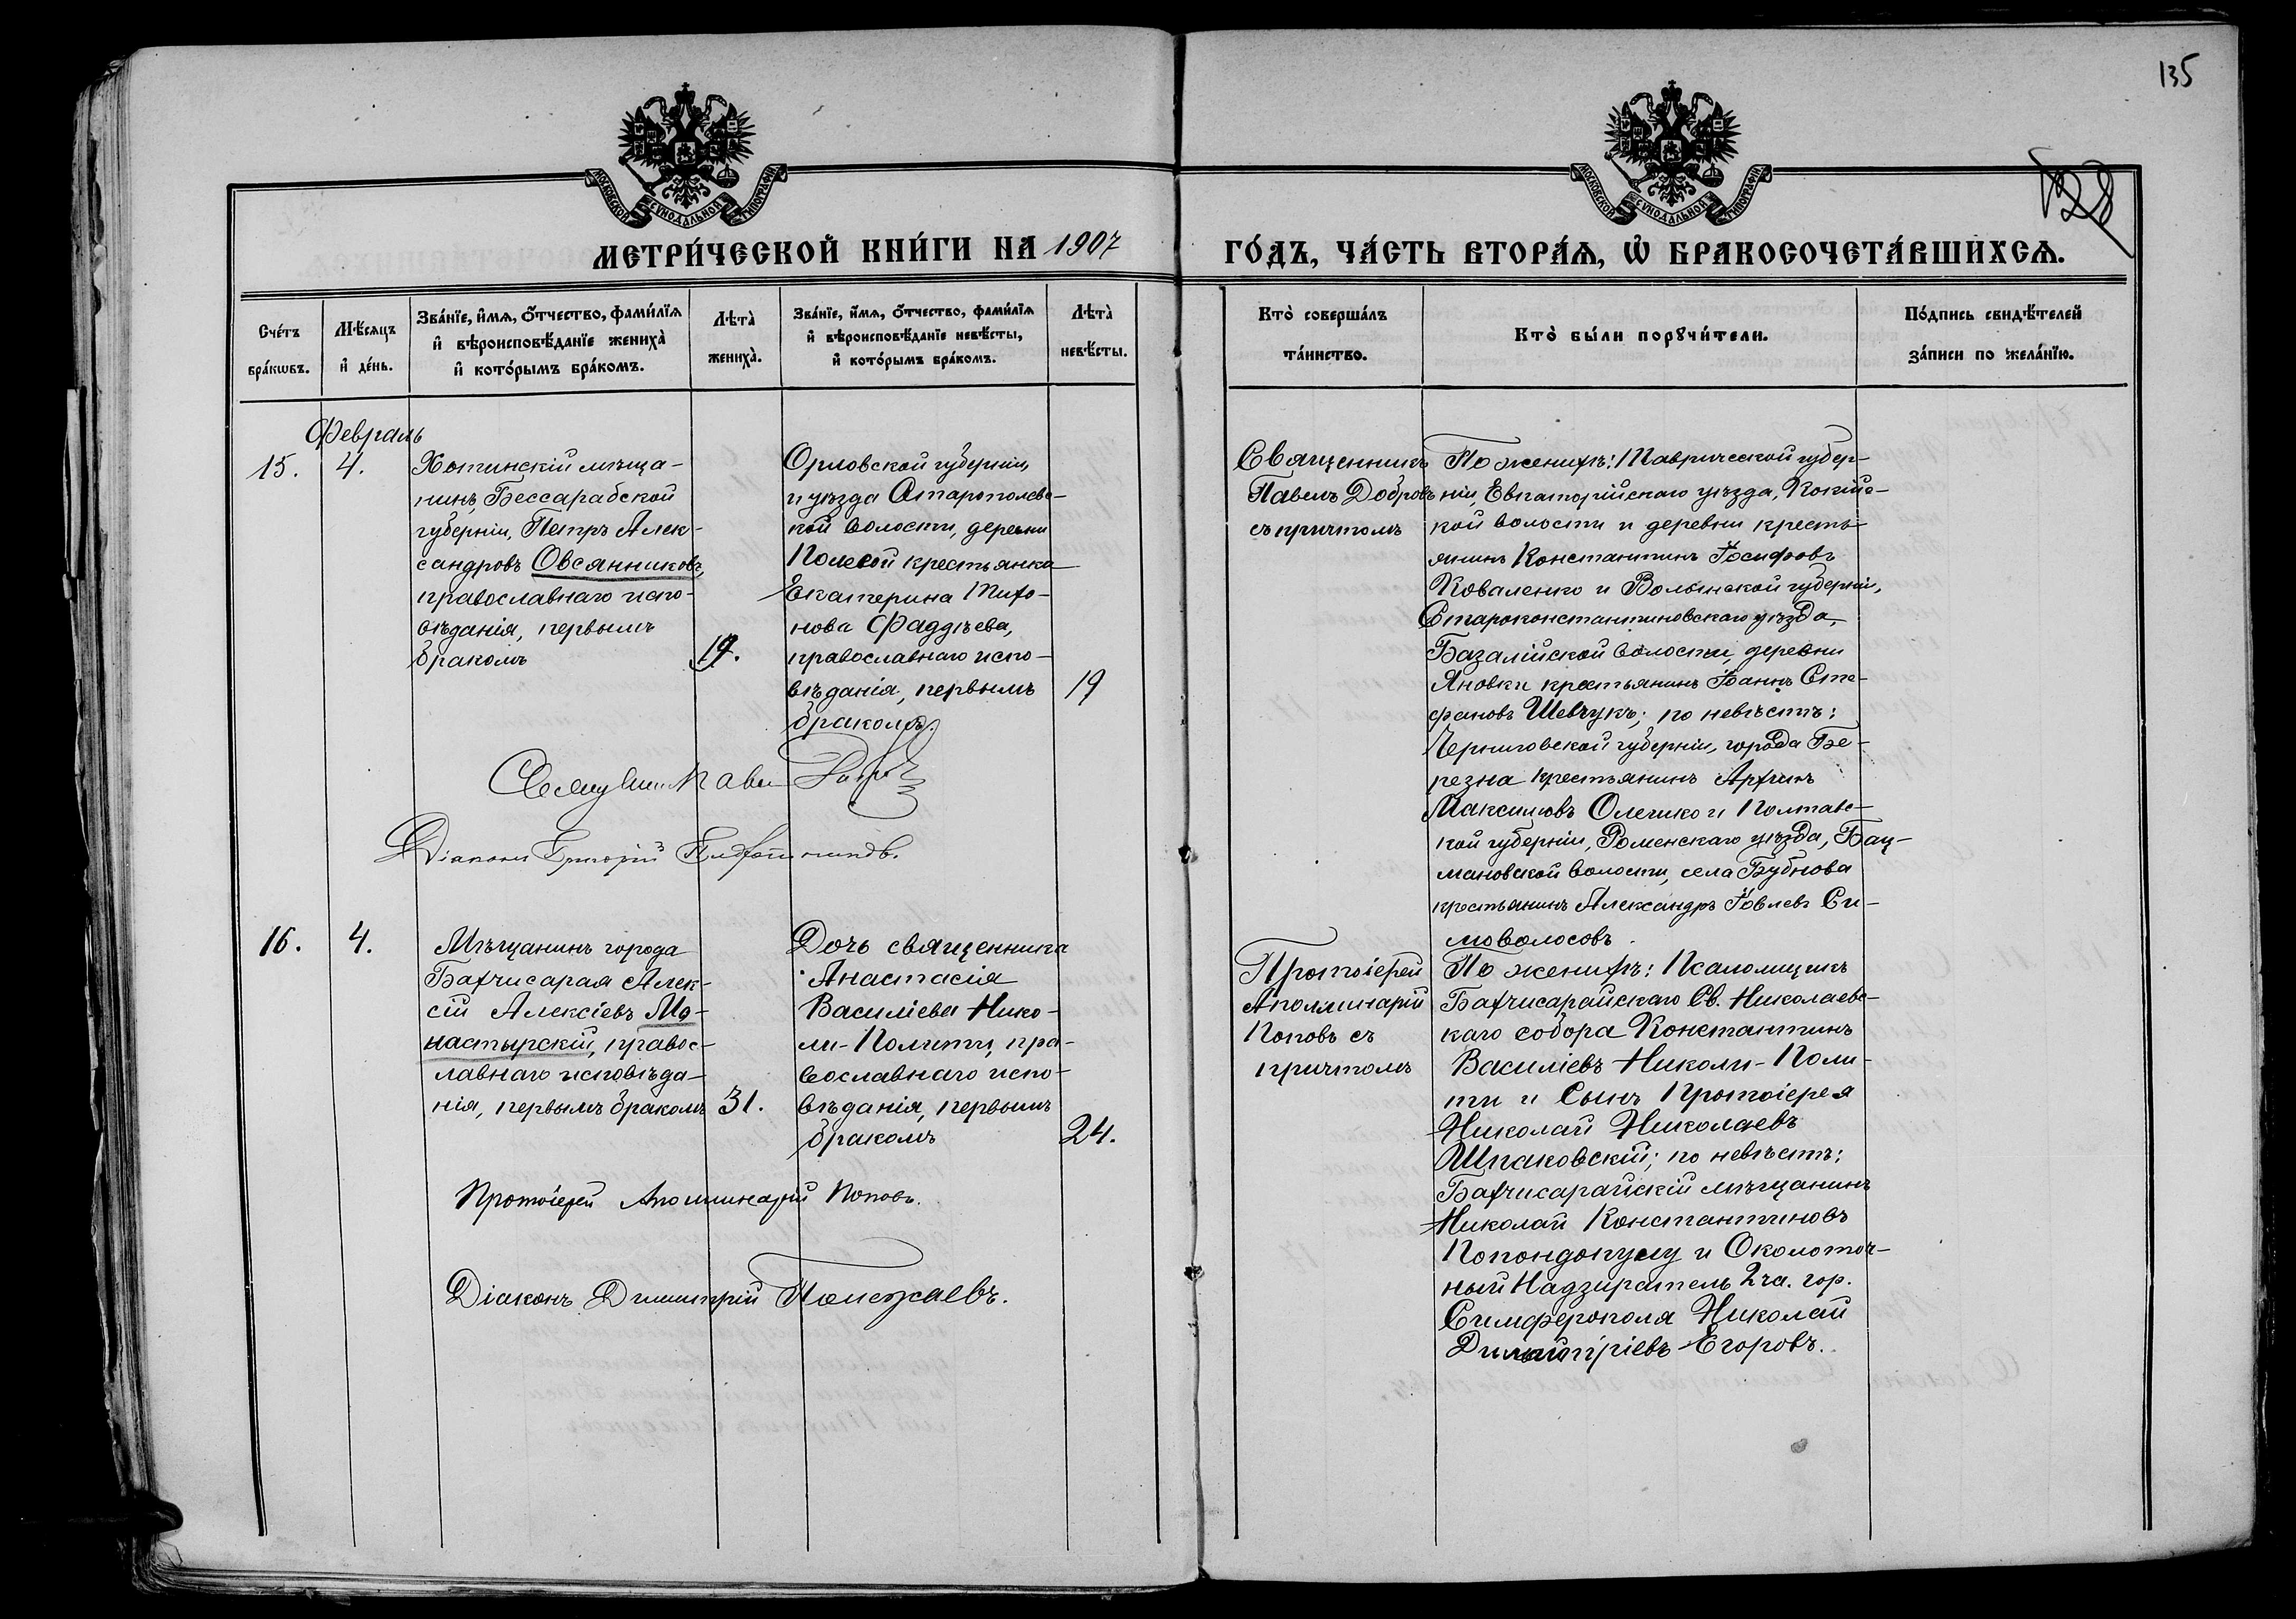 135
128
МОСКОВСКОЙ СѴНОДАЛЬНОЙ ТИПОГРАФІИ
МОСКОВСКОЙ СѴНОДАЛЬНОЙ ТИПОГРАФІИ
МЕТРИ́ЧЕСКОЙ КНИ́ГИ НА 1907
ГО́ДЪ, ЧА́СТЬ ВТОРА́Ѧ, Ѡ҆ БРАКОСОЧЕТА́ВШИХСѦ.
Сче́тъ
бра́кѡвъ.
Мѣ́сяцъ
и҆ де́нь.
Зва́нїе, и҆́мѧ, о҆́тчество, фами́лїѧ
и҆ вѣроисповѣ́данїе жениха̀
и҆ кото́рымъ бра́комъ.
Лѣта̀
жениха̀.
Зва́нїе, и҆́мѧ, о҆́тчество, фами́лїѧ
и҆ вѣроисповѣ́данїе невѣ́сты,
и҆ кото́рымъ бра́комъ.
Лѣта̀
невѣ́сты.
Кто̀ соверша́лъ
та́инство.
Кто̀ бы́ли порꙋчи́тели.
По́дпись свидѣ́телей
за́писи по жела́нїю.
Февраль
15.
4.
Хотинскій мѣща-
нинъ, Бессарабской
губерніи, Петръ Алек-
сандровъ Овсянниковъ,
православнаго испо-
вѣданія, первымъ
бракомъ
19.
Орловской губерніи,
и уѣзда Старополевс-
кой волости, деревни
Полевой крестьянка
Екатерина Тихо-
нова Фаддѣева,
православнаго испо-
вѣданія, первымъ
бракомъ.
19
Священникъ
Павелъ Добровъ
съ причтомъ
По женихѣ: Таврической губер-
ніи, Евпаторійскаго уѣзда, Кокійс-
кой волости и деревни кресть-
янинъ Константинъ Іосифовъ
Коваленко и Волынской губерніи,
Староконстантиновскаго уѣзда,
Базалійской волости, деревни
Яновки крестьянинъ Іоаннъ Сте-
фановъ Шевчукъ; по невѣстѣ:
Черниговской губерніи, города Бе-
резна крестьянинъ Архипъ
Максимовъ Олешко и Полтавс-
кой губерніи, Роменскаго уѣзда, Бац-
мановской волости, села Бубнова
крестьянинъ Александръ Іовлевъ Си-
моволосовъ.
Діаконъ Григорій
16.
4.
Мѣщанинъ города
Бахчисарая Алек-
сій Алексіевъ Мо-
настырскій, правос-
лавнаго исповѣда-
нія, первымъ бракомъ
31.
Дочь священника
Анастасія
Василіева Нико-
ли-Полити, пра-
вославнаго испо-
вѣданія, первымъ
бракомъ
24.
Протоіерей
Аполлинарій
Поповъ съ
причтомъ
По женихѣ: Псаломщикъ
Бахчисарайскаго Св. Николаевс-
каго собора Константинъ
Василіевъ Николи-Поли-
ти и Сынъ Протоіерея
Николай Николаевъ
Шпаковскій; по невѣстѣ:
Бахчисарайскій мѣщанинъ
Николай Константиновъ
Попондопулу и Околоточ-
ный Надзиратель 2 ча. гор.
Симферополя Николай
Димитріевъ Егоровъ.
Протоіерей Аполлинарій Поповъ.
Діаконъ Димитрій Полежаевъ.